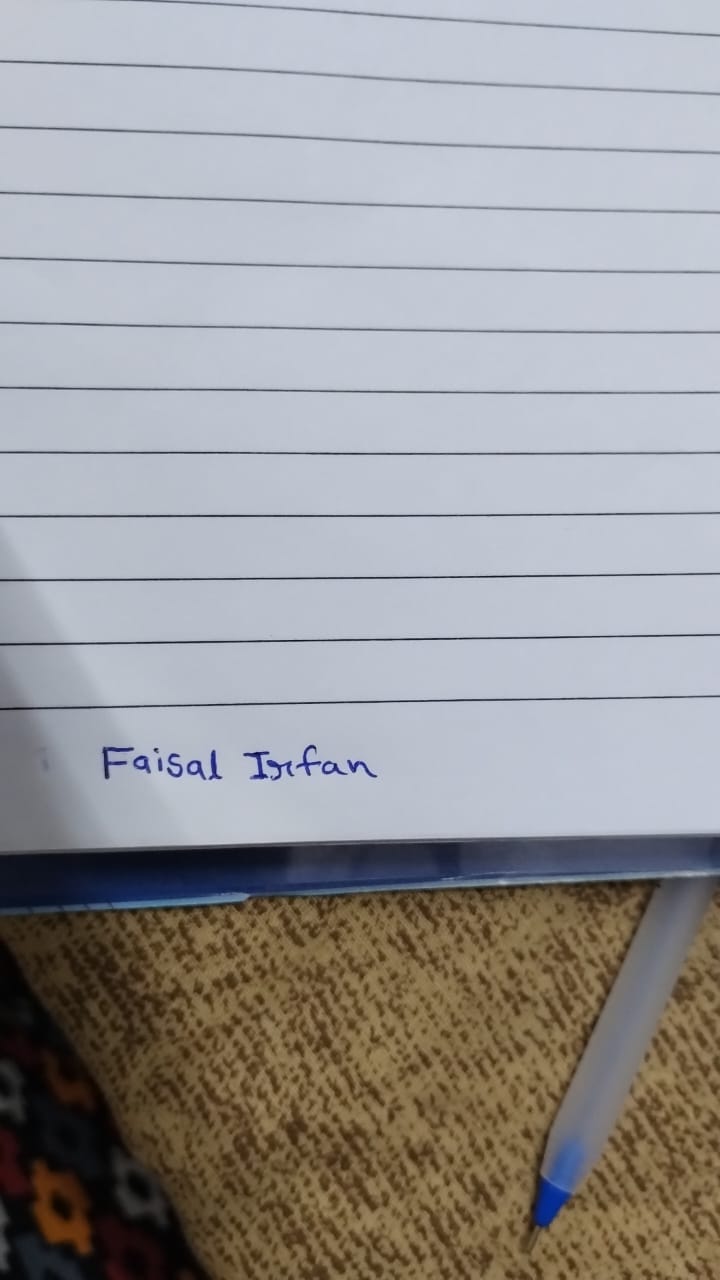 Faisal Irfan